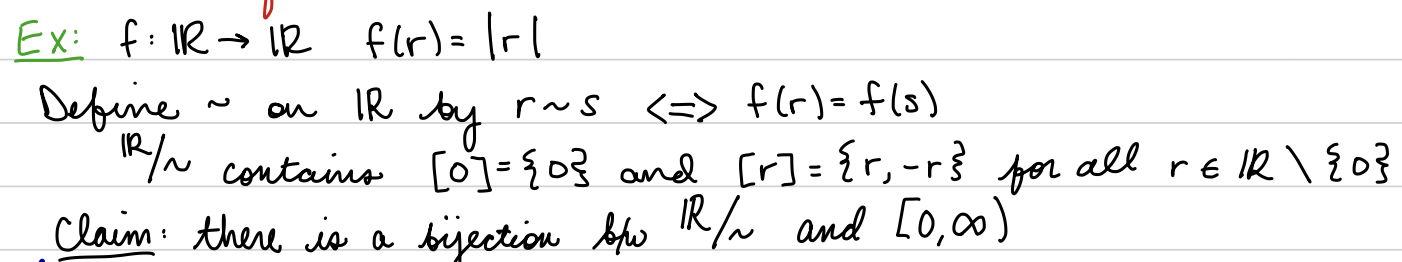 Ex: f: ℝ → ℝ f(r) = |r|
Define ~ on ℝ by r ~ s <=> f(r) = f(s)
ℝ/~ contains [0] = {0} and [r] = {r, -r} for all r ∈ ℝ \ {0}
Claim: there is a bijection b/w ℝ/~ and [0, ∞)